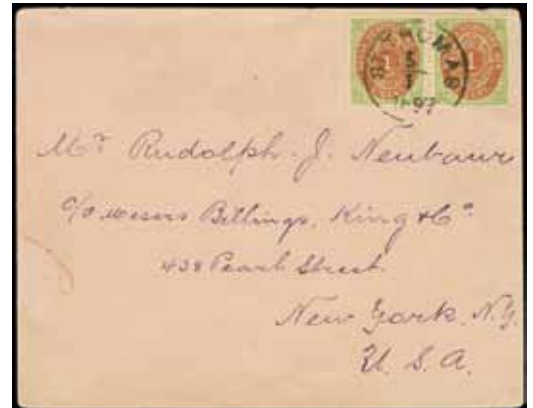 1 1
ST THOMAS
1897
Mr Rudolph. J. Neubaur
c/o messrs Billings, King & Co.
438 Pearl Street
New York. N.Y.
U. S. A.